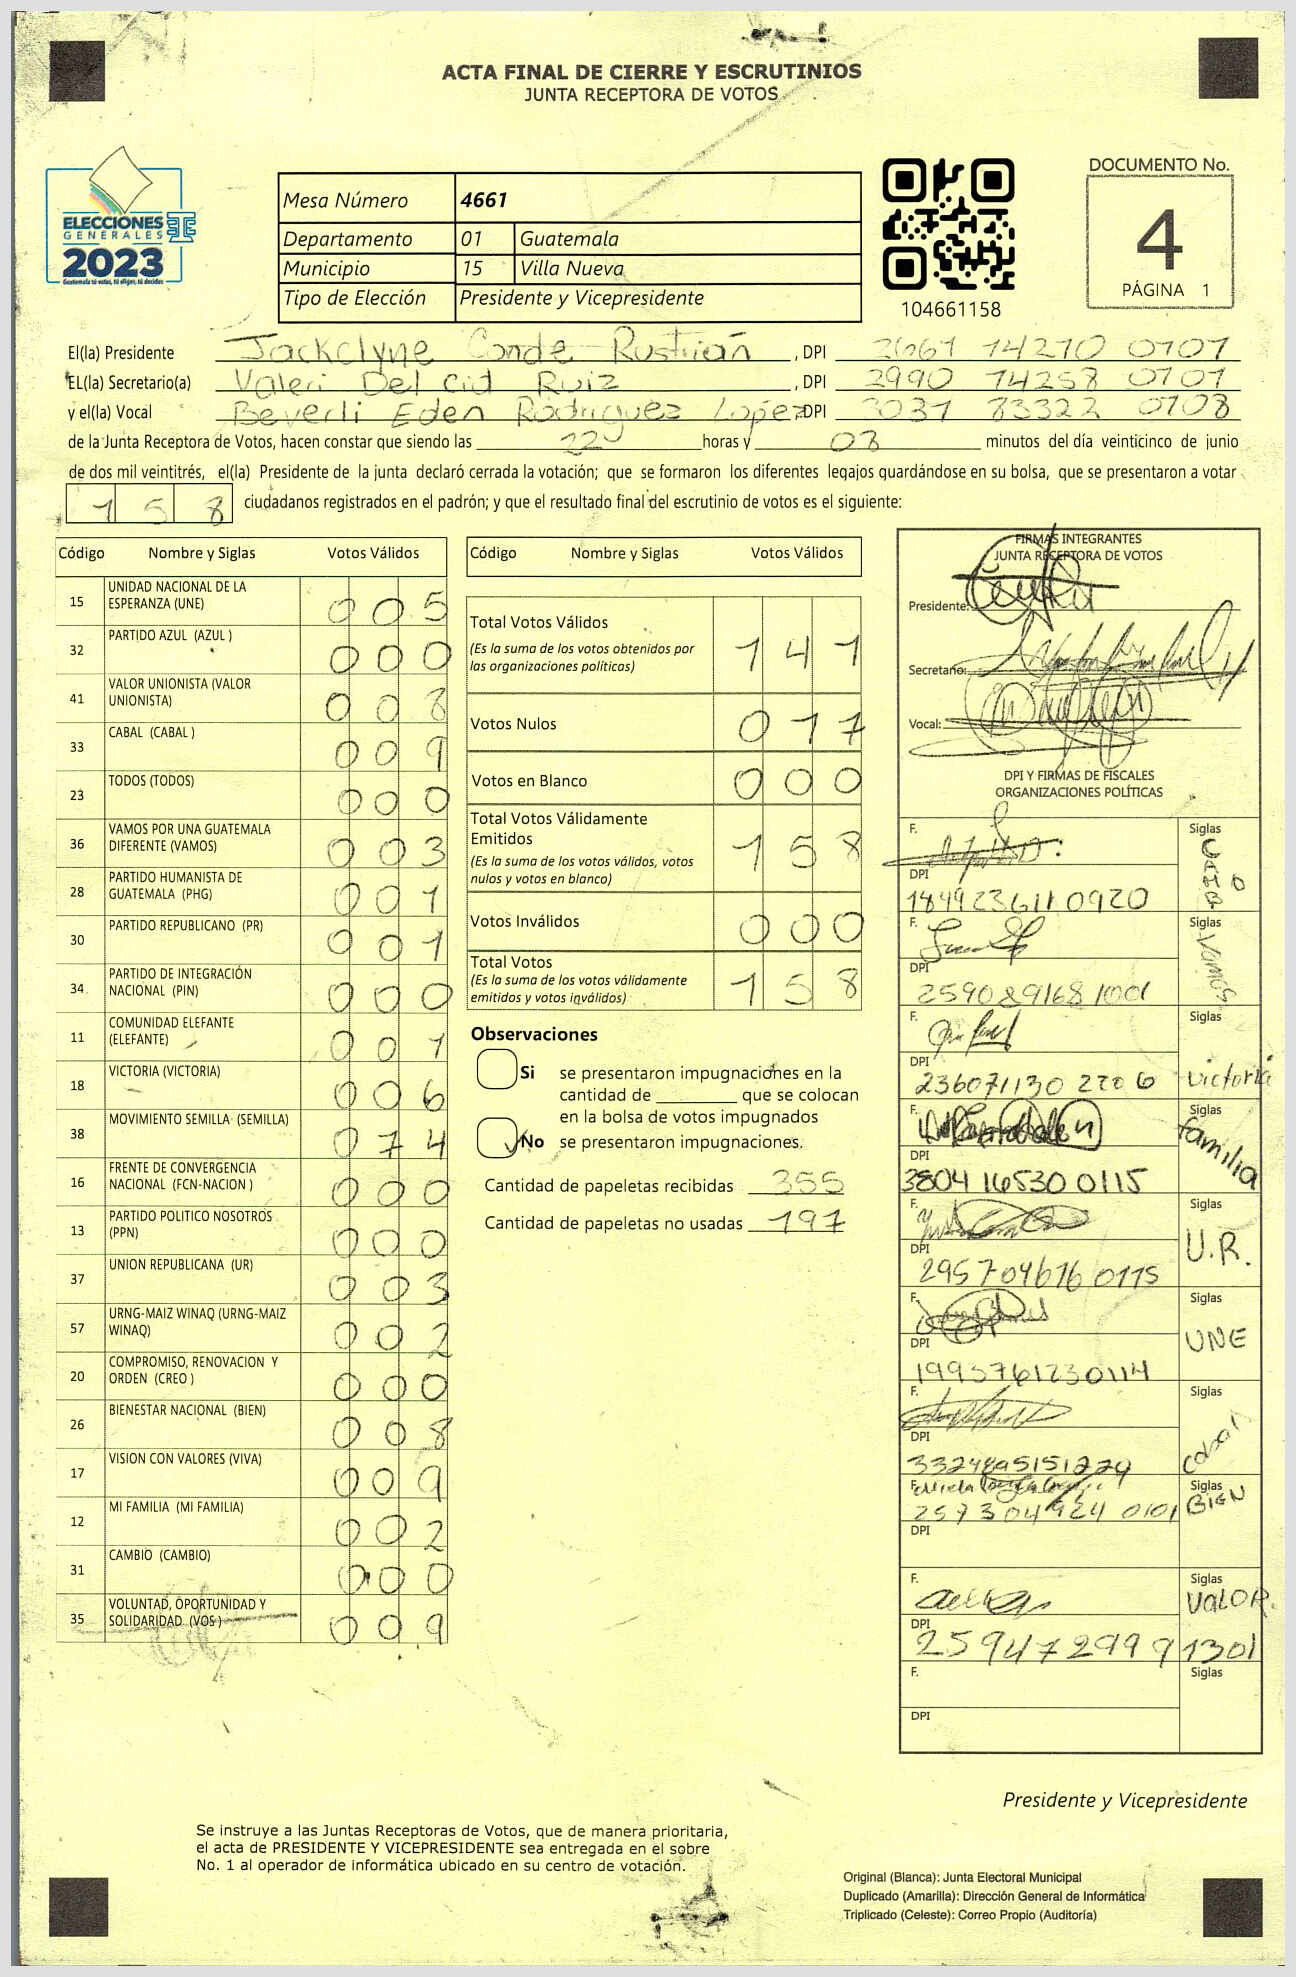 ACTA FINAL DE CIERRE Y ESCRUTINIOS
JUNTA RECEPTORA DE VOTOS
ELECCIONES
GENERALES
2023
Guatemala tú votas, tú eliges, tú decides
Mesa Número 4661
Departamento 01 Guatemala
Municipio 15 Villa Nueva
Tipo de Elección Presidente y Vicepresidente
104661158
DOCUMENTO No.
4
PÁGINA 1
El(la) Presidente Jackclyne Conde Rustrián, DPI 2661 14210 0101
EL(la) Secretario(a) Valeri Del cid Ruiz, DPI 2990 14258 0101
y el(la) Vocal Beverli Eden Rodriguez Lopez DPI 3031 83322 0108
de la Junta Receptora de Votos, hacen constar que siendo las 22 horas y 03 minutos del día veinticinco de junio
de dos mil veintitrés, el(la) Presidente de la junta declaró cerrada la votación; que se formaron los diferentes legajos guardándose en su bolsa, que se presentaron a votar
158 ciudadanos registrados en el padrón; y que el resultado final del escrutinio de votos es el siguiente:
Código Nombre y Siglas Votos Válidos
15 UNIDAD NACIONAL DE LA ESPERANZA (UNE) 005
32 PARTIDO AZUL (AZUL ) 000
41 VALOR UNIONISTA (VALOR UNIONISTA) 008
33 CABAL (CABAL ) 009
23 TODOS (TODOS) 000
36 VAMOS POR UNA GUATEMALA DIFERENTE (VAMOS) 003
28 PARTIDO HUMANISTA DE GUATEMALA (PHG) 001
30 PARTIDO REPUBLICANO (PR) 001
34 PARTIDO DE INTEGRACIÓN NACIONAL (PIN) 000
11 COMUNIDAD ELEFANTE (ELEFANTE) 001
18 VICTORIA (VICTORIA) 006
38 MOVIMIENTO SEMILLA (SEMILLA) 074
16 FRENTE DE CONVERGENCIA NACIONAL (FCN-NACION ) 000
13 PARTIDO POLITICO NOSOTROS (PPN) 000
37 UNION REPUBLICANA (UR) 003
57 URNG-MAIZ WINAQ (URNG-MAIZ WINAQ) 002
20 COMPROMISO, RENOVACION Y ORDEN (CREO ) 000
26 BIENESTAR NACIONAL (BIEN) 008
17 VISION CON VALORES (VIVA) 009
12 MI FAMILIA (MI FAMILIA) 002
31 CAMBIO (CAMBIO) 000
35 VOLUNTAD, OPORTUNIDAD Y SOLIDARIDAD (VOS ) 009
Código Nombre y Siglas Votos Válidos
Total Votos Válidos 141
(Es la suma de los votos obtenidos por
las organizaciones políticas)
Votos Nulos 017
Votos en Blanco 000
Total Votos Válidamente
Emitidos 158
(Es la suma de los votos válidos, votos
nulos y votos en blanco)
Votos Inválidos 000
Total Votos 158
(Es la suma de los votos válidamente
emitidos y votos inválidos)
Observaciones
Si se presentaron impugnaciones en la
cantidad de ________ que se colocan
en la bolsa de votos impugnados
No se presentaron impugnaciones.
Cantidad de papeletas recibidas 355
Cantidad de papeletas no usadas 197
FIRMAS INTEGRANTES
JUNTA RECEPTORA DE VOTOS
Presidente:
Secretario:
Vocal:
DPI Y FIRMAS DE FISCALES
ORGANIZACIONES POLÍTICAS
F. Siglas
DPI
1849236110920
F. Siglas Vamos
DPI
2590891681001
F. Siglas
DPI
236071130 2206 victoria
F. Siglas familia
DPI
3804 16530 0115
F. Siglas
U.R.
DPI
295704676 0115
F. Siglas
UNE
DPI
1993761230114
F. Siglas
Cabal
DPI
3324895151229
F. Siglas
BIEN
257304924 0101
DPI
F. Siglas
VALOR.
DPI
2594729991301
F. Siglas
DPI
Presidente y Vicepresidente
Se instruye a las Juntas Receptoras de Votos, que de manera prioritaria,
el acta de PRESIDENTE Y VICEPRESIDENTE sea entregada en el sobre
No. 1 al operador de informática ubicado en su centro de votación.
Original (Blanca): Junta Electoral Municipal
Duplicado (Amarilla): Dirección General de Informática
Triplicado (Celeste): Correo Propio (Auditoría)